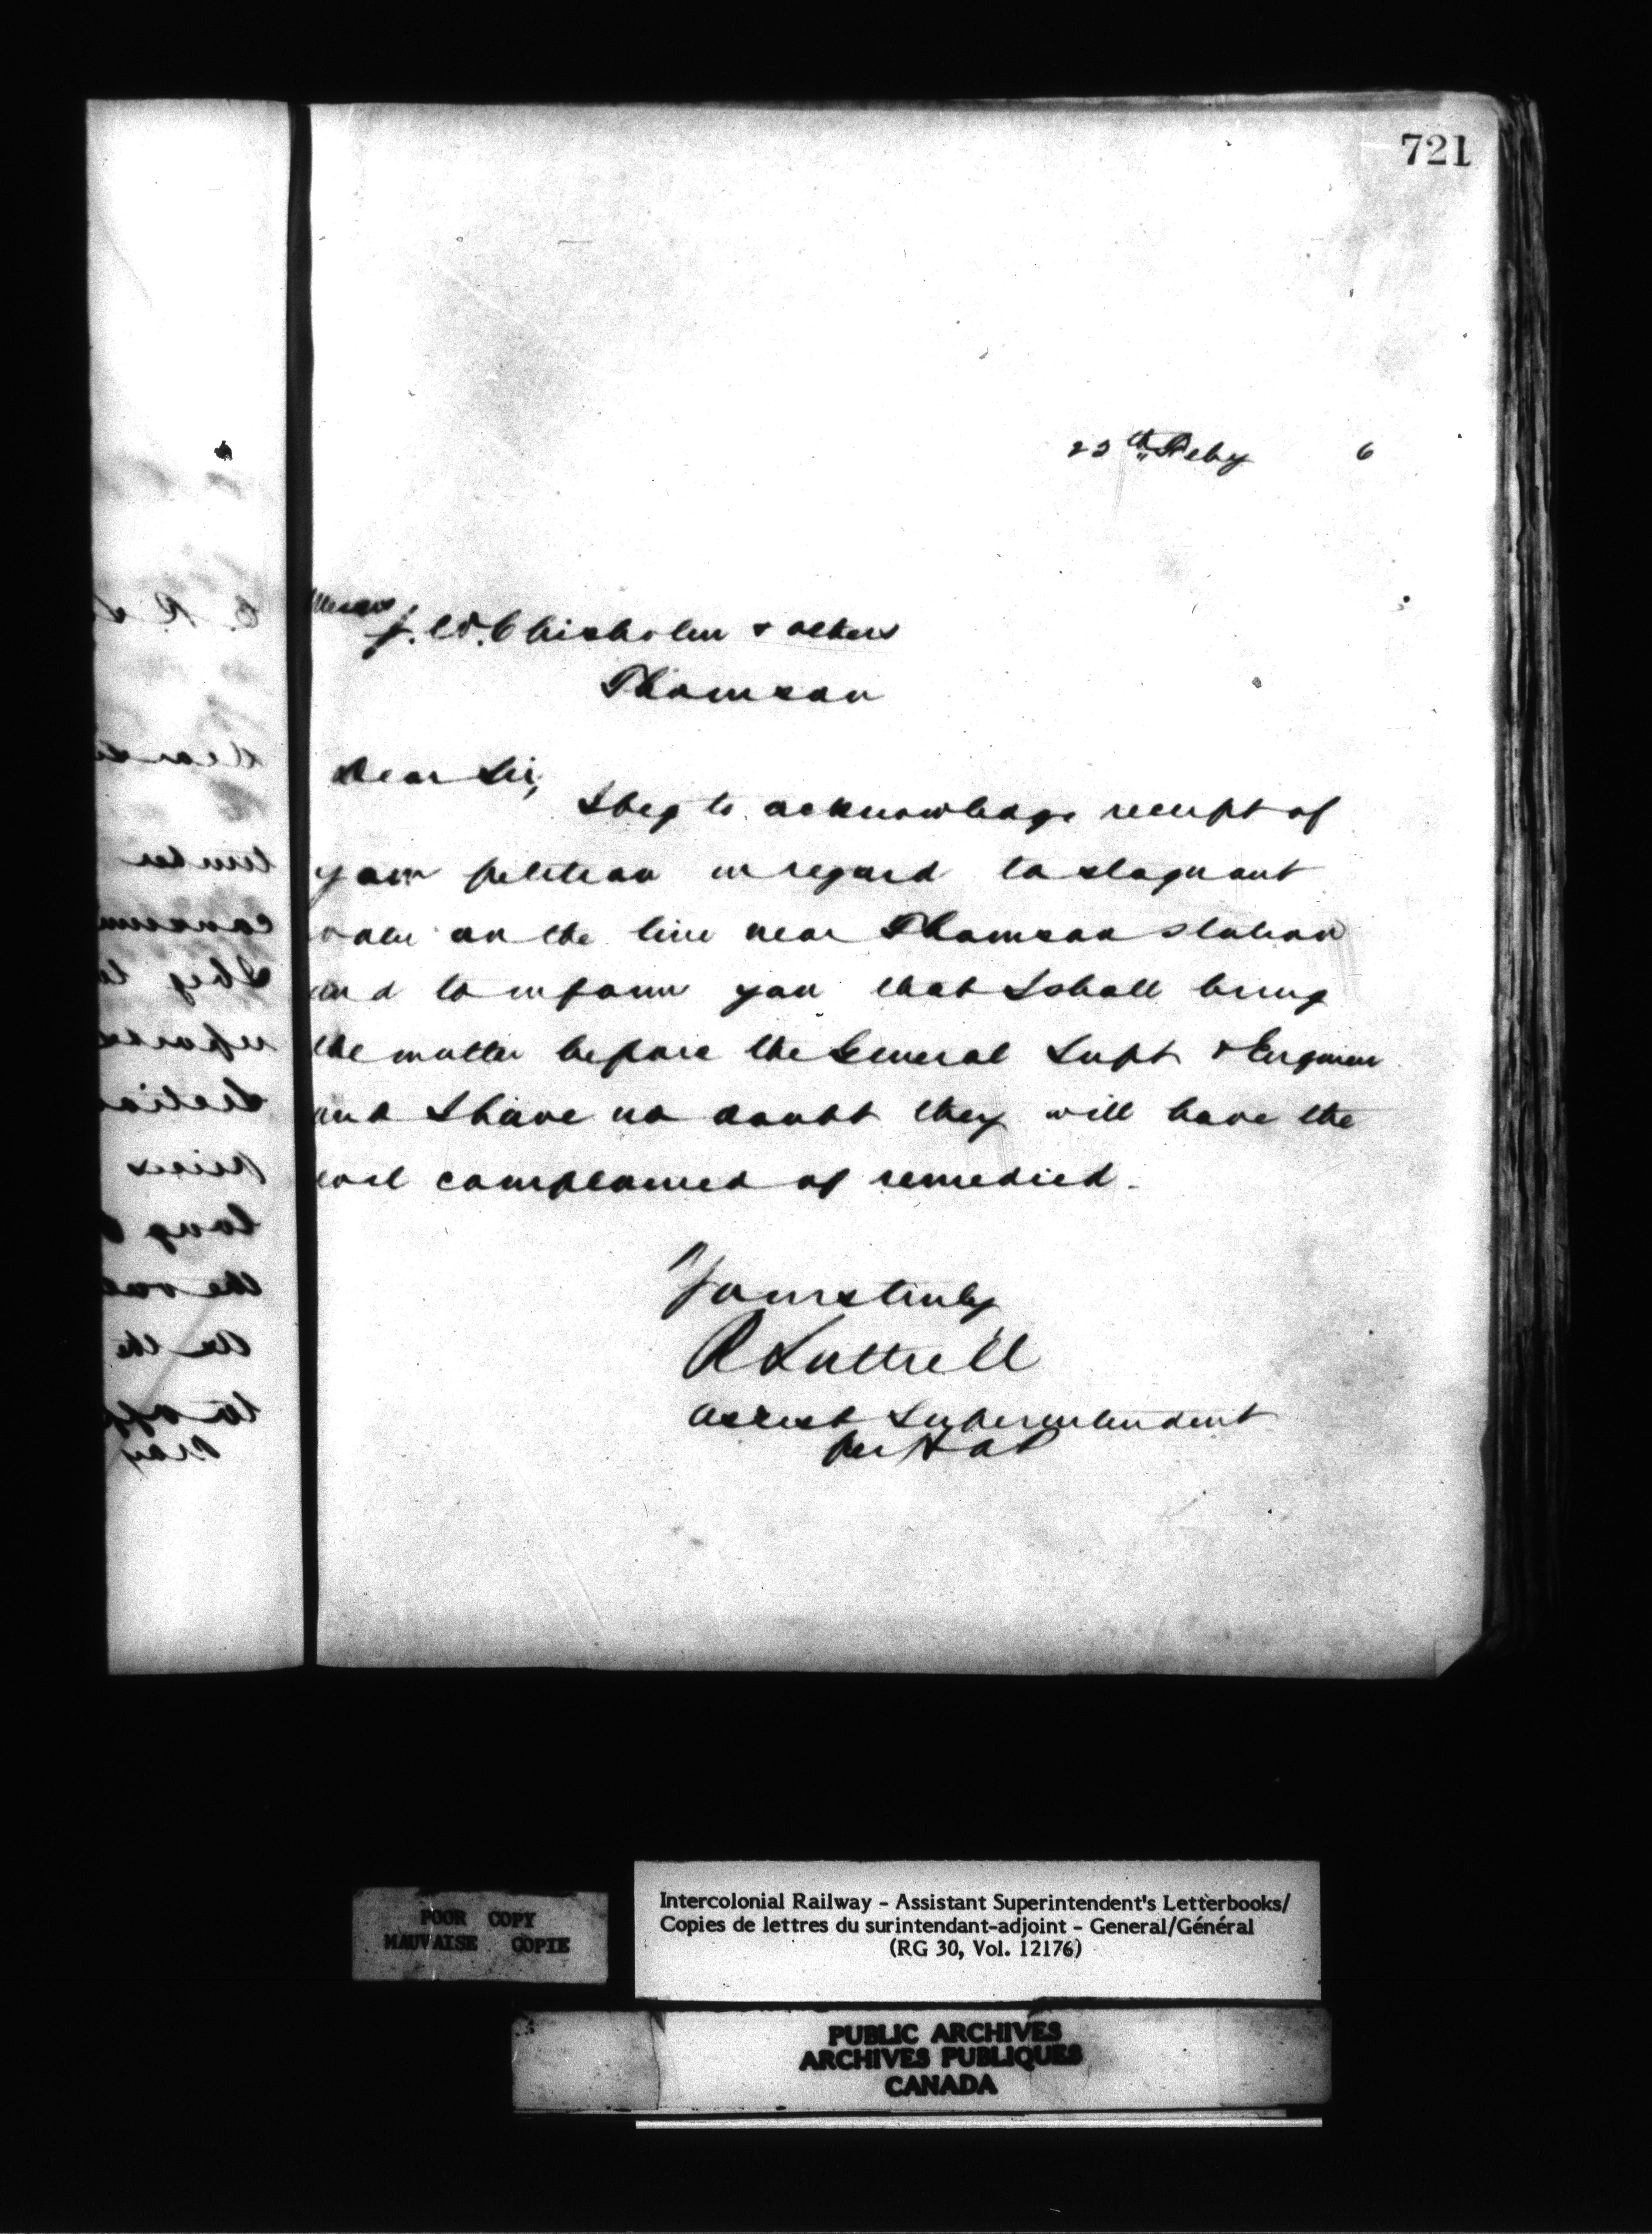 721
23th Feby 6
Messrs
J. W. Chisholm & others
Thomson
Dear Sir,
I beg to acknowledge receipt of
your petition in regard to stagnant
water on the line near Thomson station
and to inform you that I shall bring
the matter before the General Supt & Engineer
and I have no doubt they will have the
evil complained of remedied.
Yours truly
R Luttrell
Assist Superintendent
per
POOR COPY
MAUVAISE COPIE
Intercolonial Railway - Assistant Superintendent's Letterbooks/
Copies de lettres du surintendant-adjoint - General/Général
(RG 30, Vol. 12176)
PUBLIC ARCHIVES
ARCHIVES PUBLIQUES
CANADA